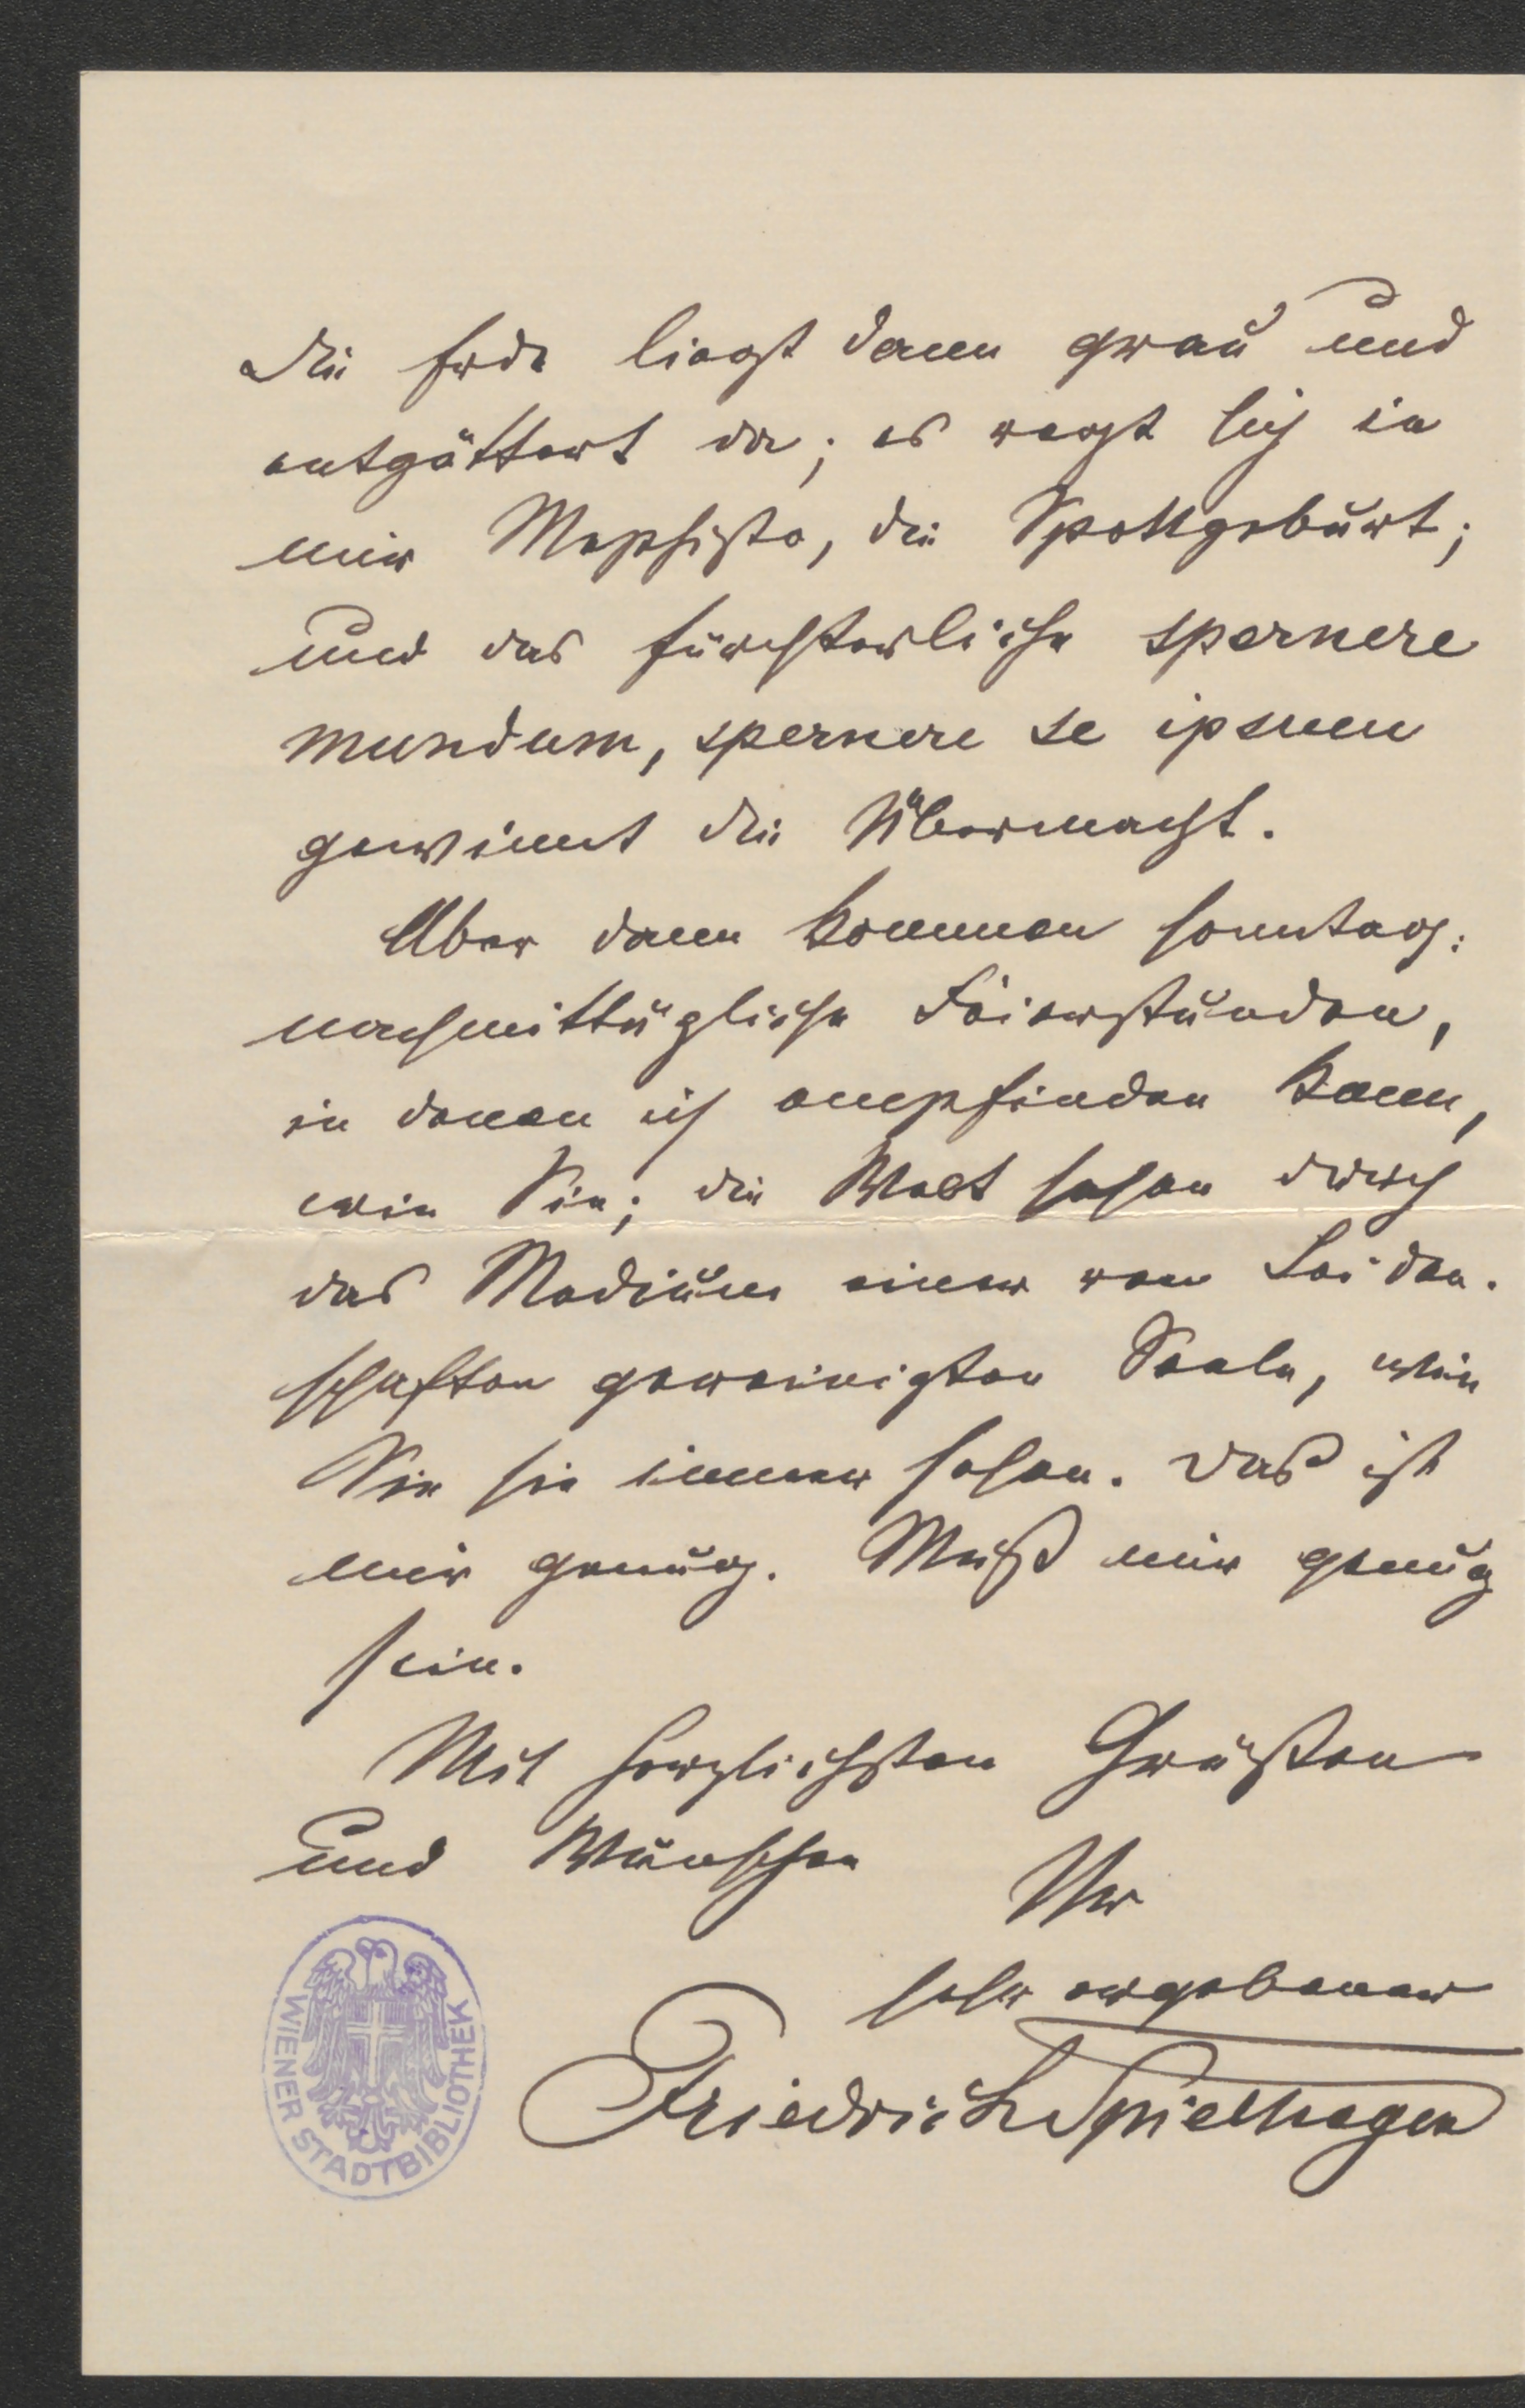 Die Erde liegt dann grau und
entgöttert da; es regt sich in
mir Mephisto, die Spottgeburt;
und das fürchterliche spernere
mundum, spernere se ipsum
gewinnt die Übermacht.
Aber dann kommen sonntag-
nachmittägliche Feierstunden,
in denen ich empfinden kann,
wie Sie; die Welt sehen durch
das Medium einer von Leiden-
schaften gereinigten Seele, wie
Sie sie immer sehen. Das ist
mir genug. Muß mir genug
sein.
Mit herzlichsten Grüßen
und Wünschen
Ihr
sehr ergebener
Friedrich Spielhagen
WIENER STADTBIBLIOTHEK